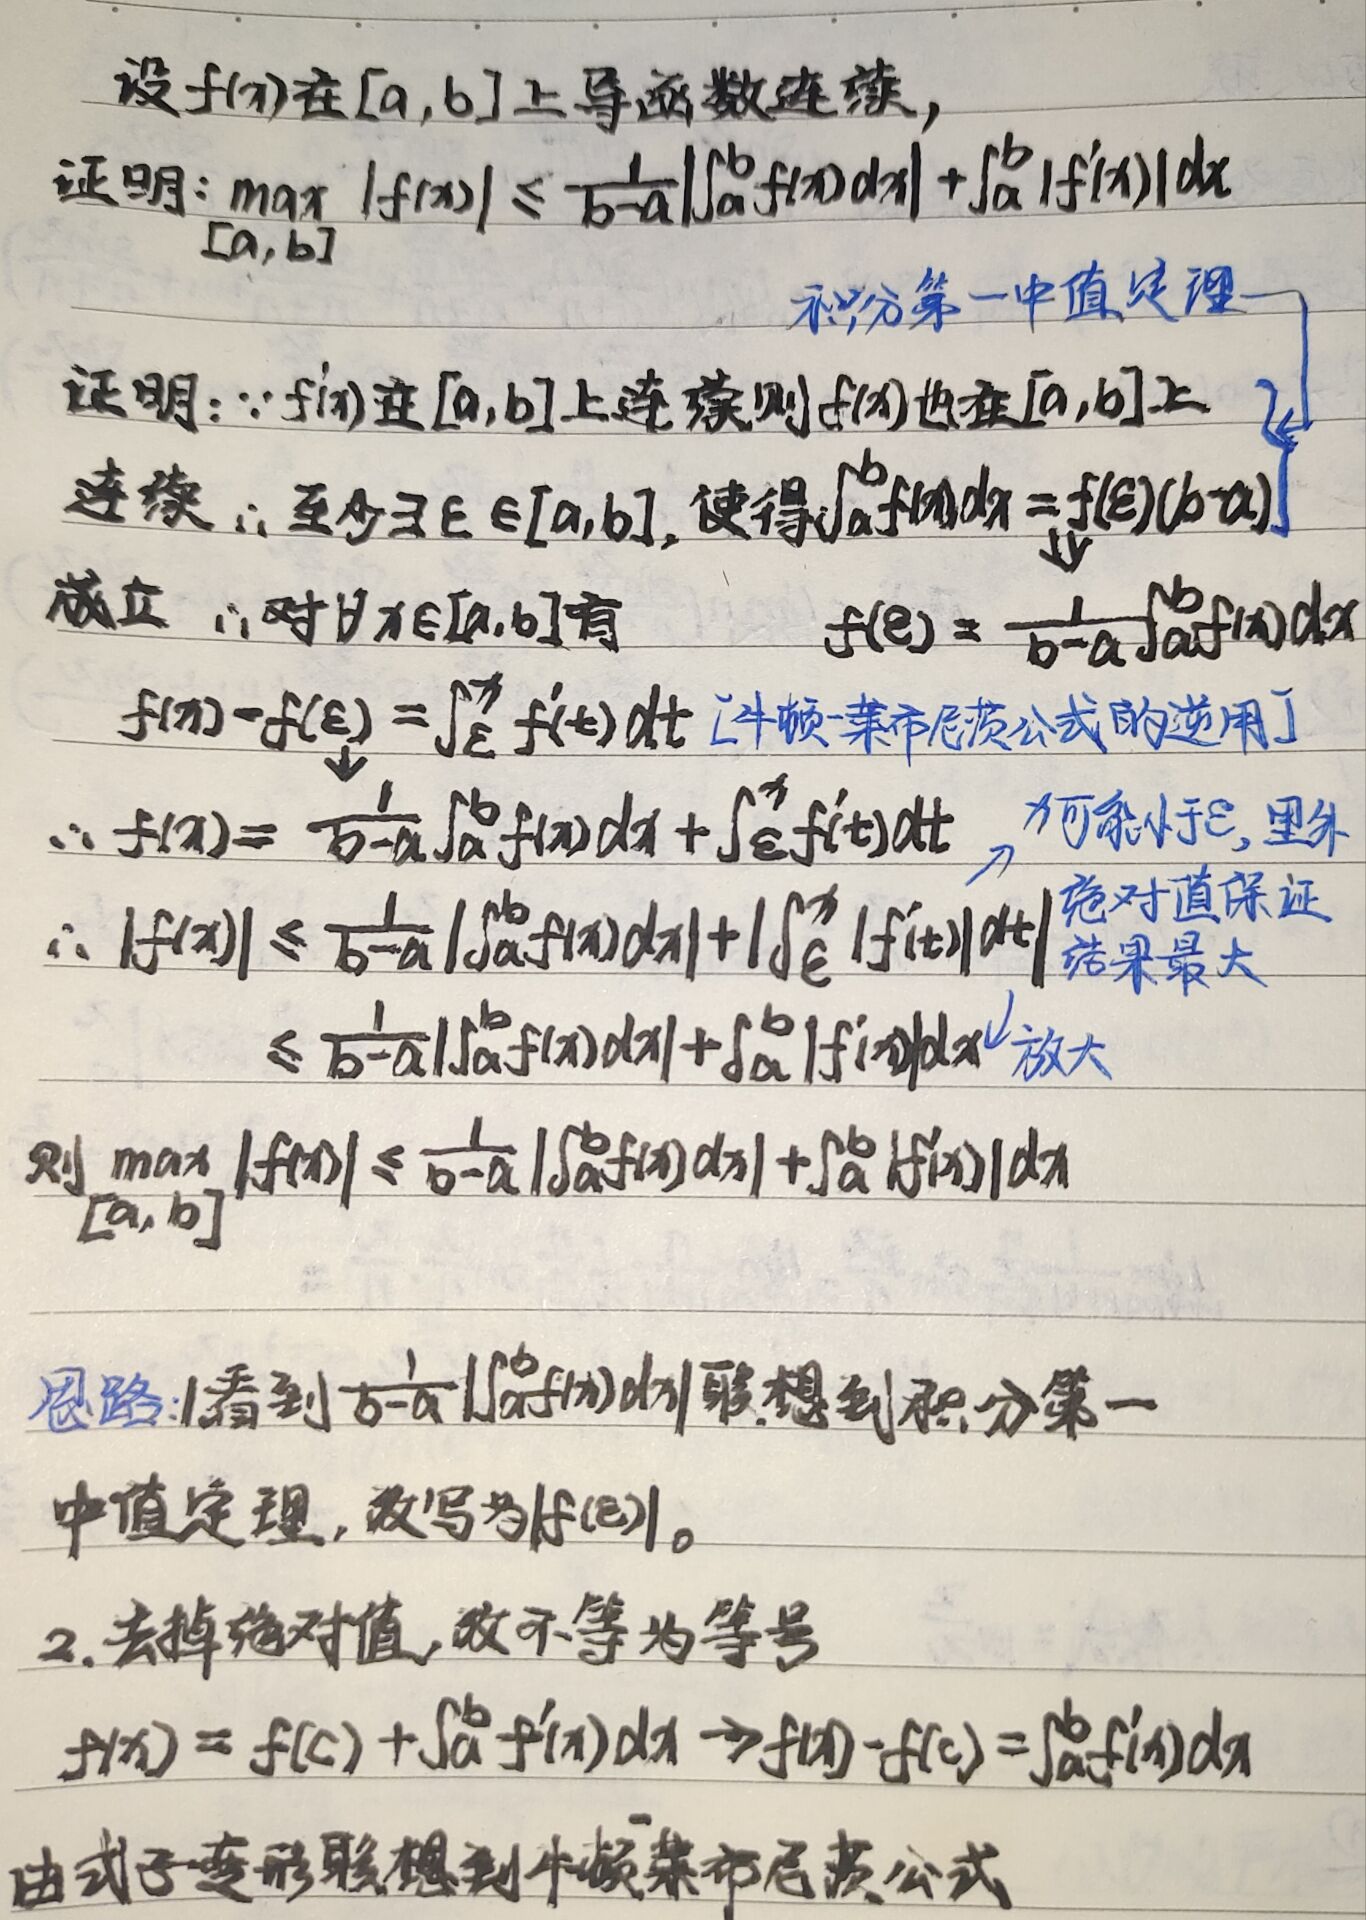 设f(x)在[a,b]上导函数连续,
证明: max |f(x)| ≤ 1/(b-a) |∫_a^b f(x)dx| + ∫_a^b |f'(x)|dx
[a,b]
积分第一中值定理
证明: ∵ f'(x)在[a,b]上连续则f(x)也在[a,b]上
连续 ∴ 至少∃ε∈[a,b], 使得∫_a^b f(x)dx = f(ε)(b-a)
成立 ∴ 对∀x∈[a,b]有 f(ε) = 1/(b-a) ∫_a^b f(x)dx
f(x)-f(ε) = ∫_ε^x f'(t)dt [牛顿-莱布尼茨公式的逆用]
∴ f(x) = 1/(b-a) ∫_a^b f(x)dx + ∫_ε^x f'(t)dt ↗ x可能小于ε, 里外
∴ |f(x)| ≤ 1/(b-a) |∫_a^b f(x)dx| + |∫_ε^x |f'(t)|dt| 绝对值保证
结果最大
≤ 1/(b-a) |∫_a^b f(x)dx| + ∫_a^b |f'(x)|dx ↙ 放大
则 max |f(x)| ≤ 1/(b-a) |∫_a^b f(x)dx| + ∫_a^b |f'(x)|dx
[a,b]
思路: 1看到 1/(b-a) |∫_a^b f(x)dx| 联想到积分第一
中值定理, 改写为|f(ε)|。
2. 去掉绝对值, 改不等为等号
f(x) = f(c) + ∫_a^b f'(x)dx → f(x)-f(c) = ∫_a^b f'(x)dx
由式子变形联想到牛顿-莱布尼茨公式